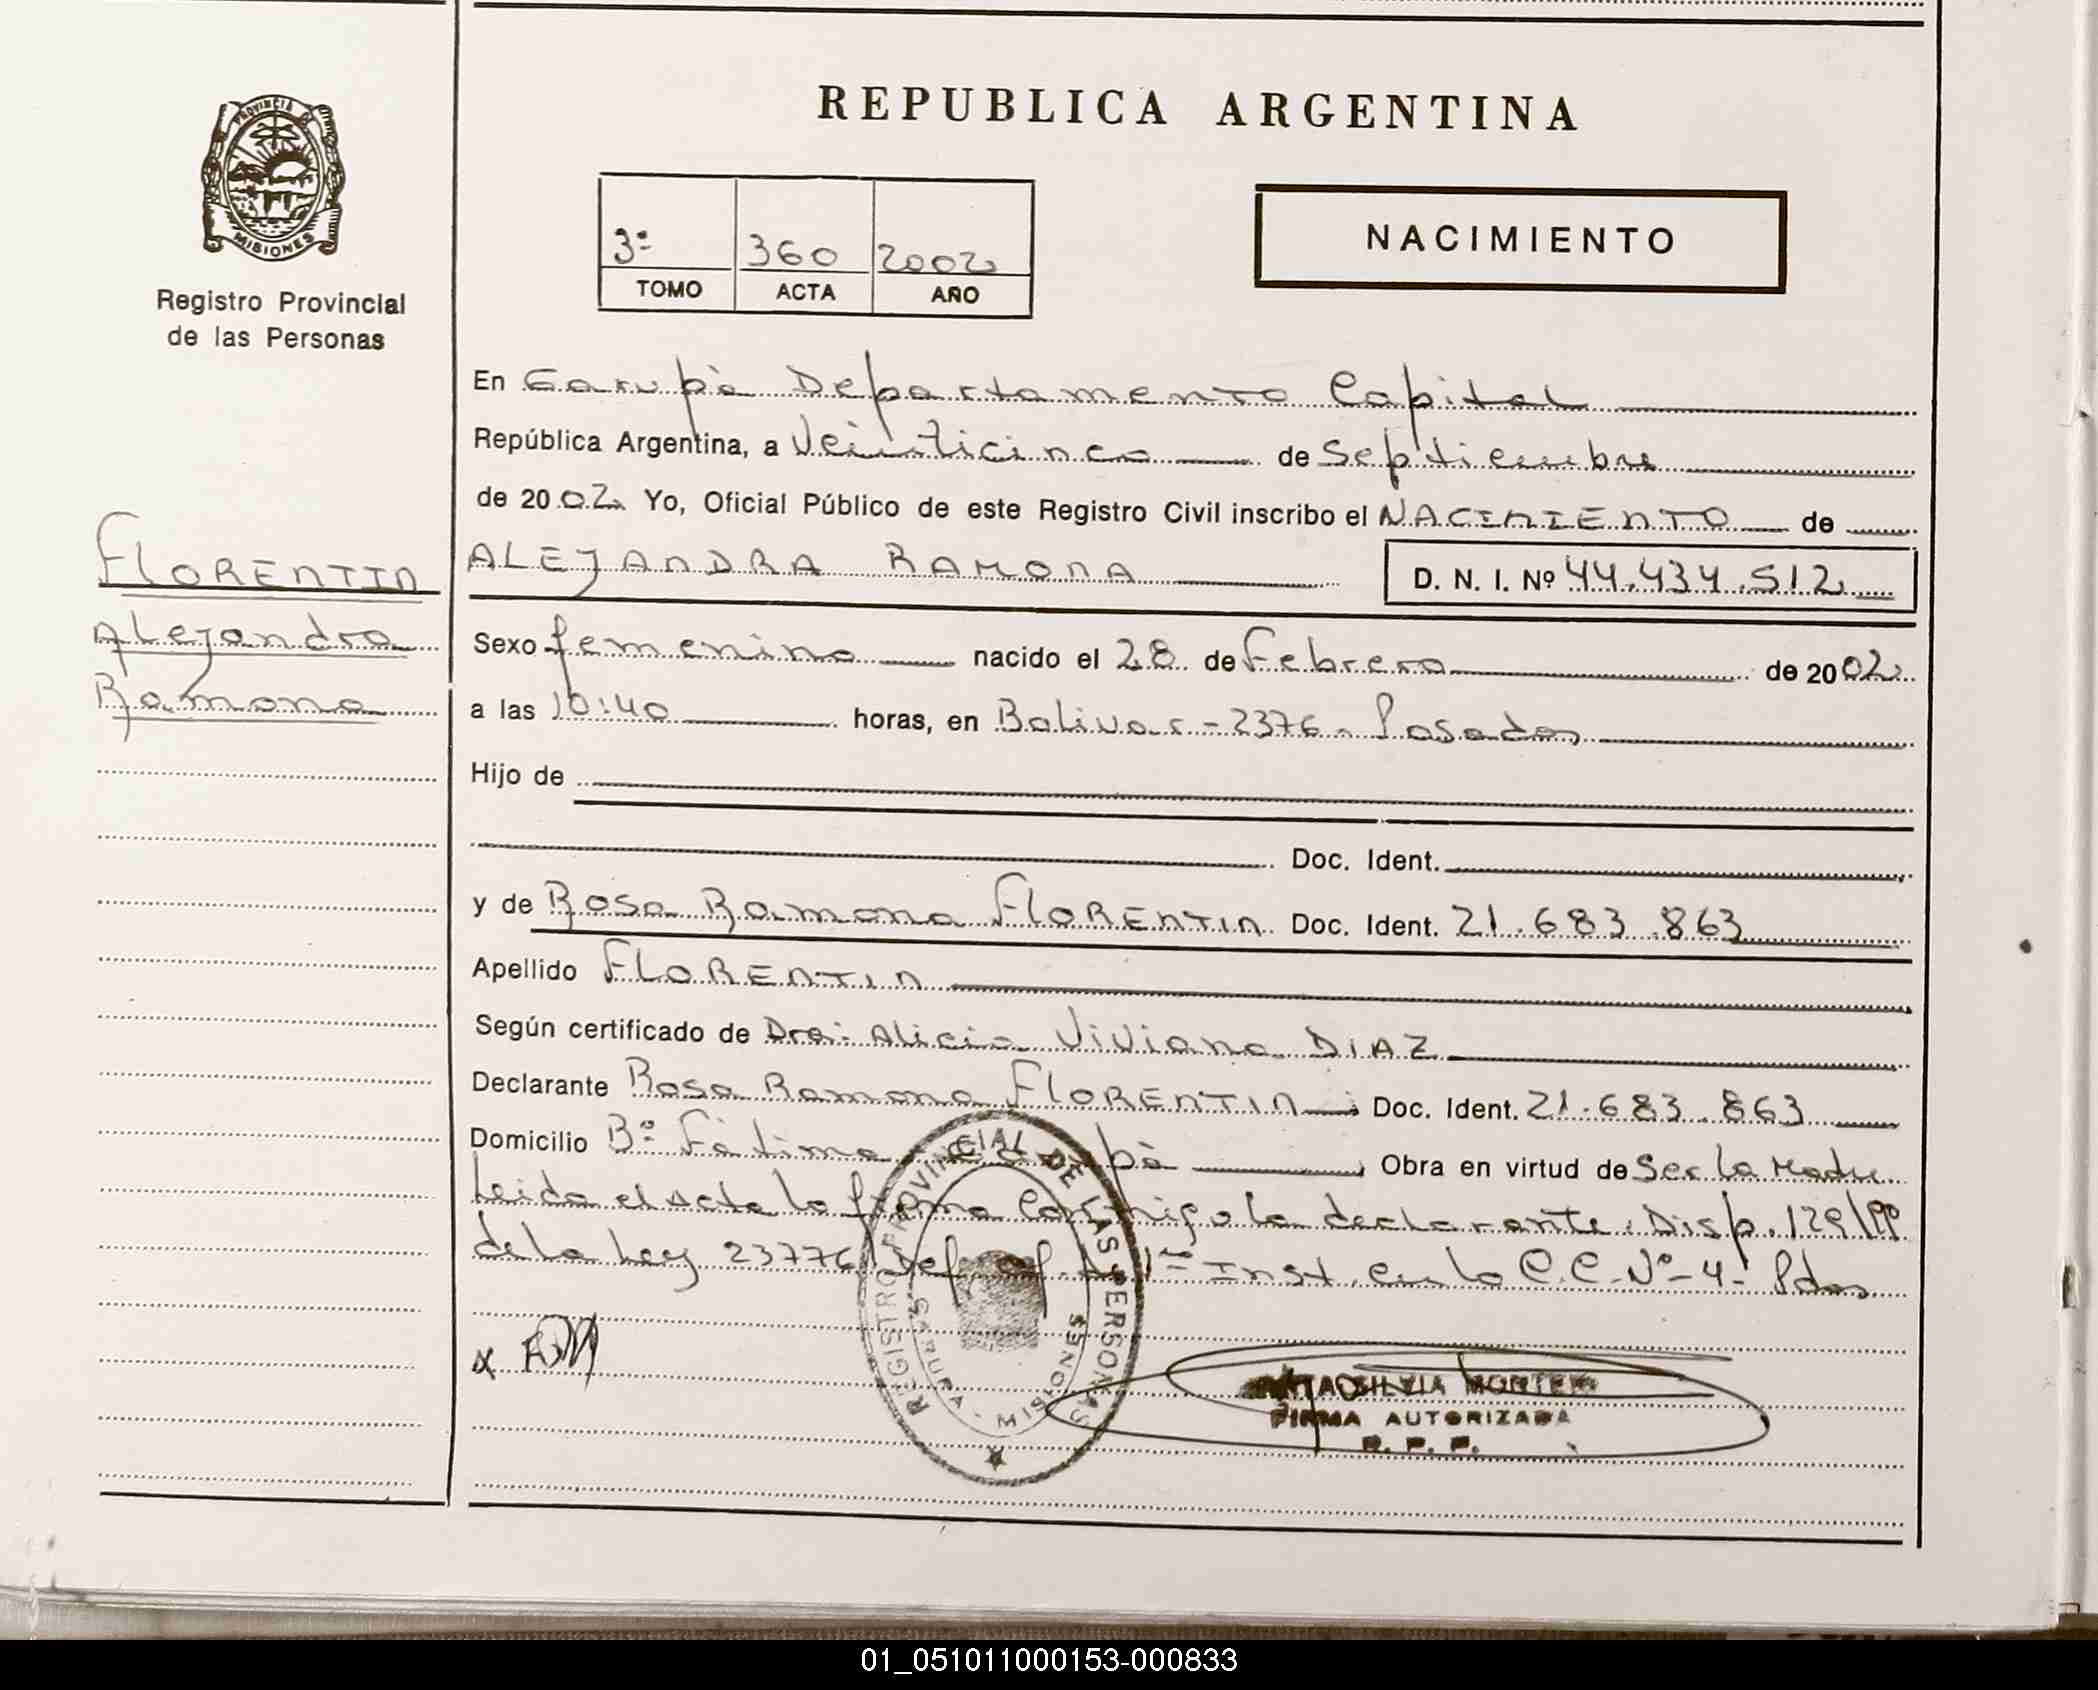 REPUBLICA ARGENTINA
PROVINCIA
MISIONES
Registro Provincial
de las Personas
3º 360 2002
TOMO ACTA AÑO
NACIMIENTO
En Garupà Departamento Capital
República Argentina, a Veinticinco de Septiembre
de 2002 Yo, Oficial Público de este Registro Civil inscribo el NACIMIENTO de
FLORENTIN
Alejandra
Ramona
ALEJANDRA RAMONA D. N. I. Nº 44.434.512
Sexo femenino nacido el 28 de Febrero de 2002
a las 10:40 horas, en Bolivar - 2376 - Posadas
Hijo de
Doc. Ident.
y de Rosa Ramona FLORENTIN Doc. Ident. 21.683.863
Apellido FLORENTIN
Según certificado de Dra: Alicia Viviana DIAZ
Declarante Rosa Ramona FLORENTIN Doc. Ident. 21.683.863
Domicilio Bº Fàtima Garupà Obra en virtud de Ser la Madre
Leida el acta la firma Conmigo la declarante. Disp. 129/99
de la Ley 23776 Def. of. 1º Inst. en lo C.C. Nº-4- Pdas
REGISTRO PROVINCIAL DE LAS PERSONAS
GARUPA - MISIONES
SILVIA
FIRMA AUTORIZADA
R. P. P.
01_051011000153-000833